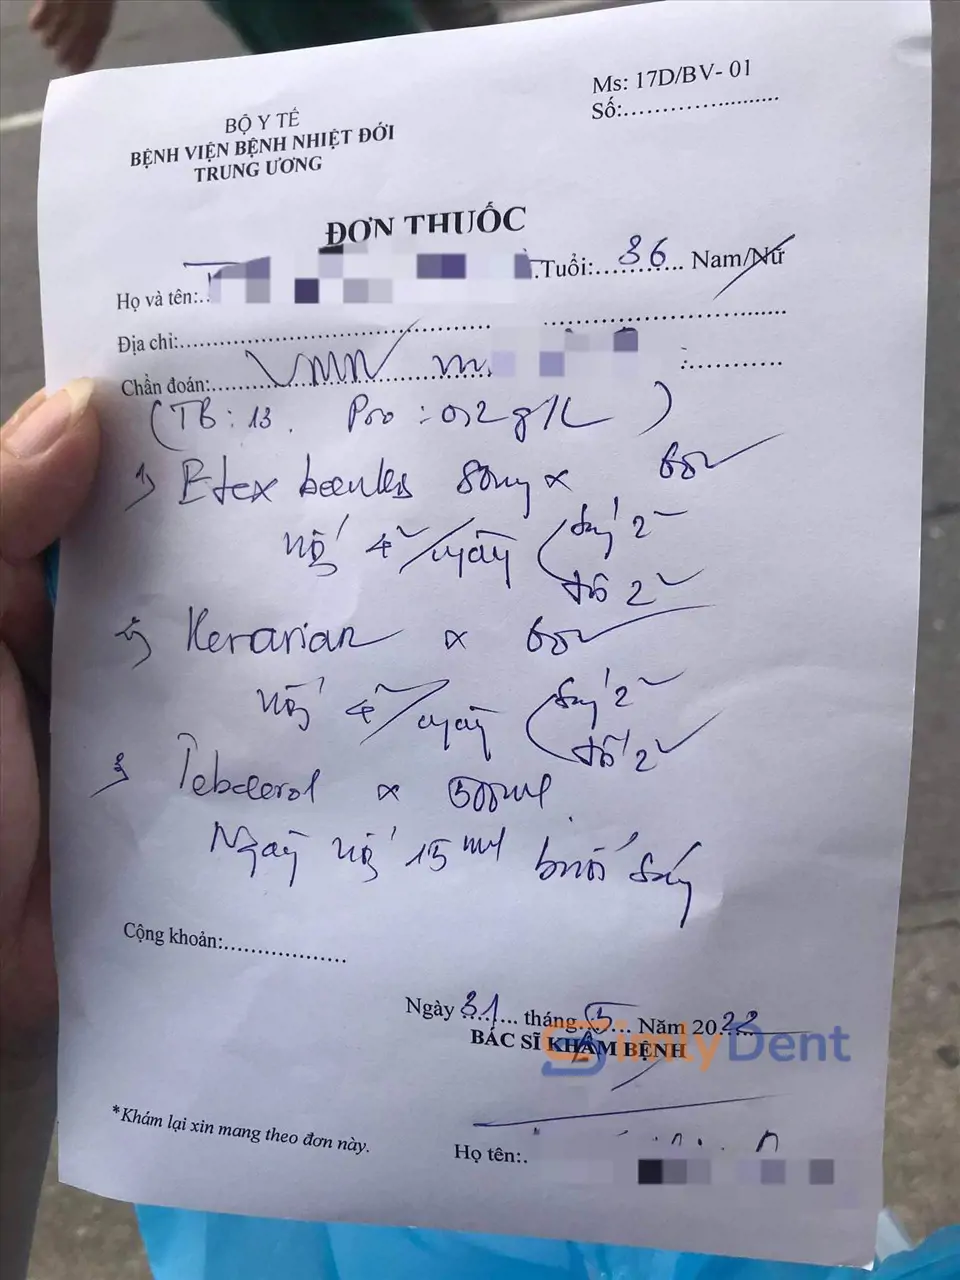 Ms: 17D/BV- 01
Số:....................
BỘ Y TẾ
BỆNH VIỆN BỆNH NHIỆT ĐỚI
TRUNG ƯƠNG
ĐƠN THUỐC
Họ và tên:.. Tuổi: 36 Nam/Nữ
Địa chỉ:
Chẩn đoán: VMN m
(TB: 13. Pro: 0,2 g/L)
1) 80mg x 60v
uống 4v/ngày sáng 2v
tối 2v
2) x 60v
uống 4v/ngày sáng 2v
tối 2v
3) x 500ml
Ngày uống 15 ml buổi sáng
Cộng khoản:....................
Ngày 31 tháng 5 Năm 2022
BÁC SĨ KHÁM BỆNH
SimlyDent
*Khám lại xin mang theo đơn này.
Họ tên:.